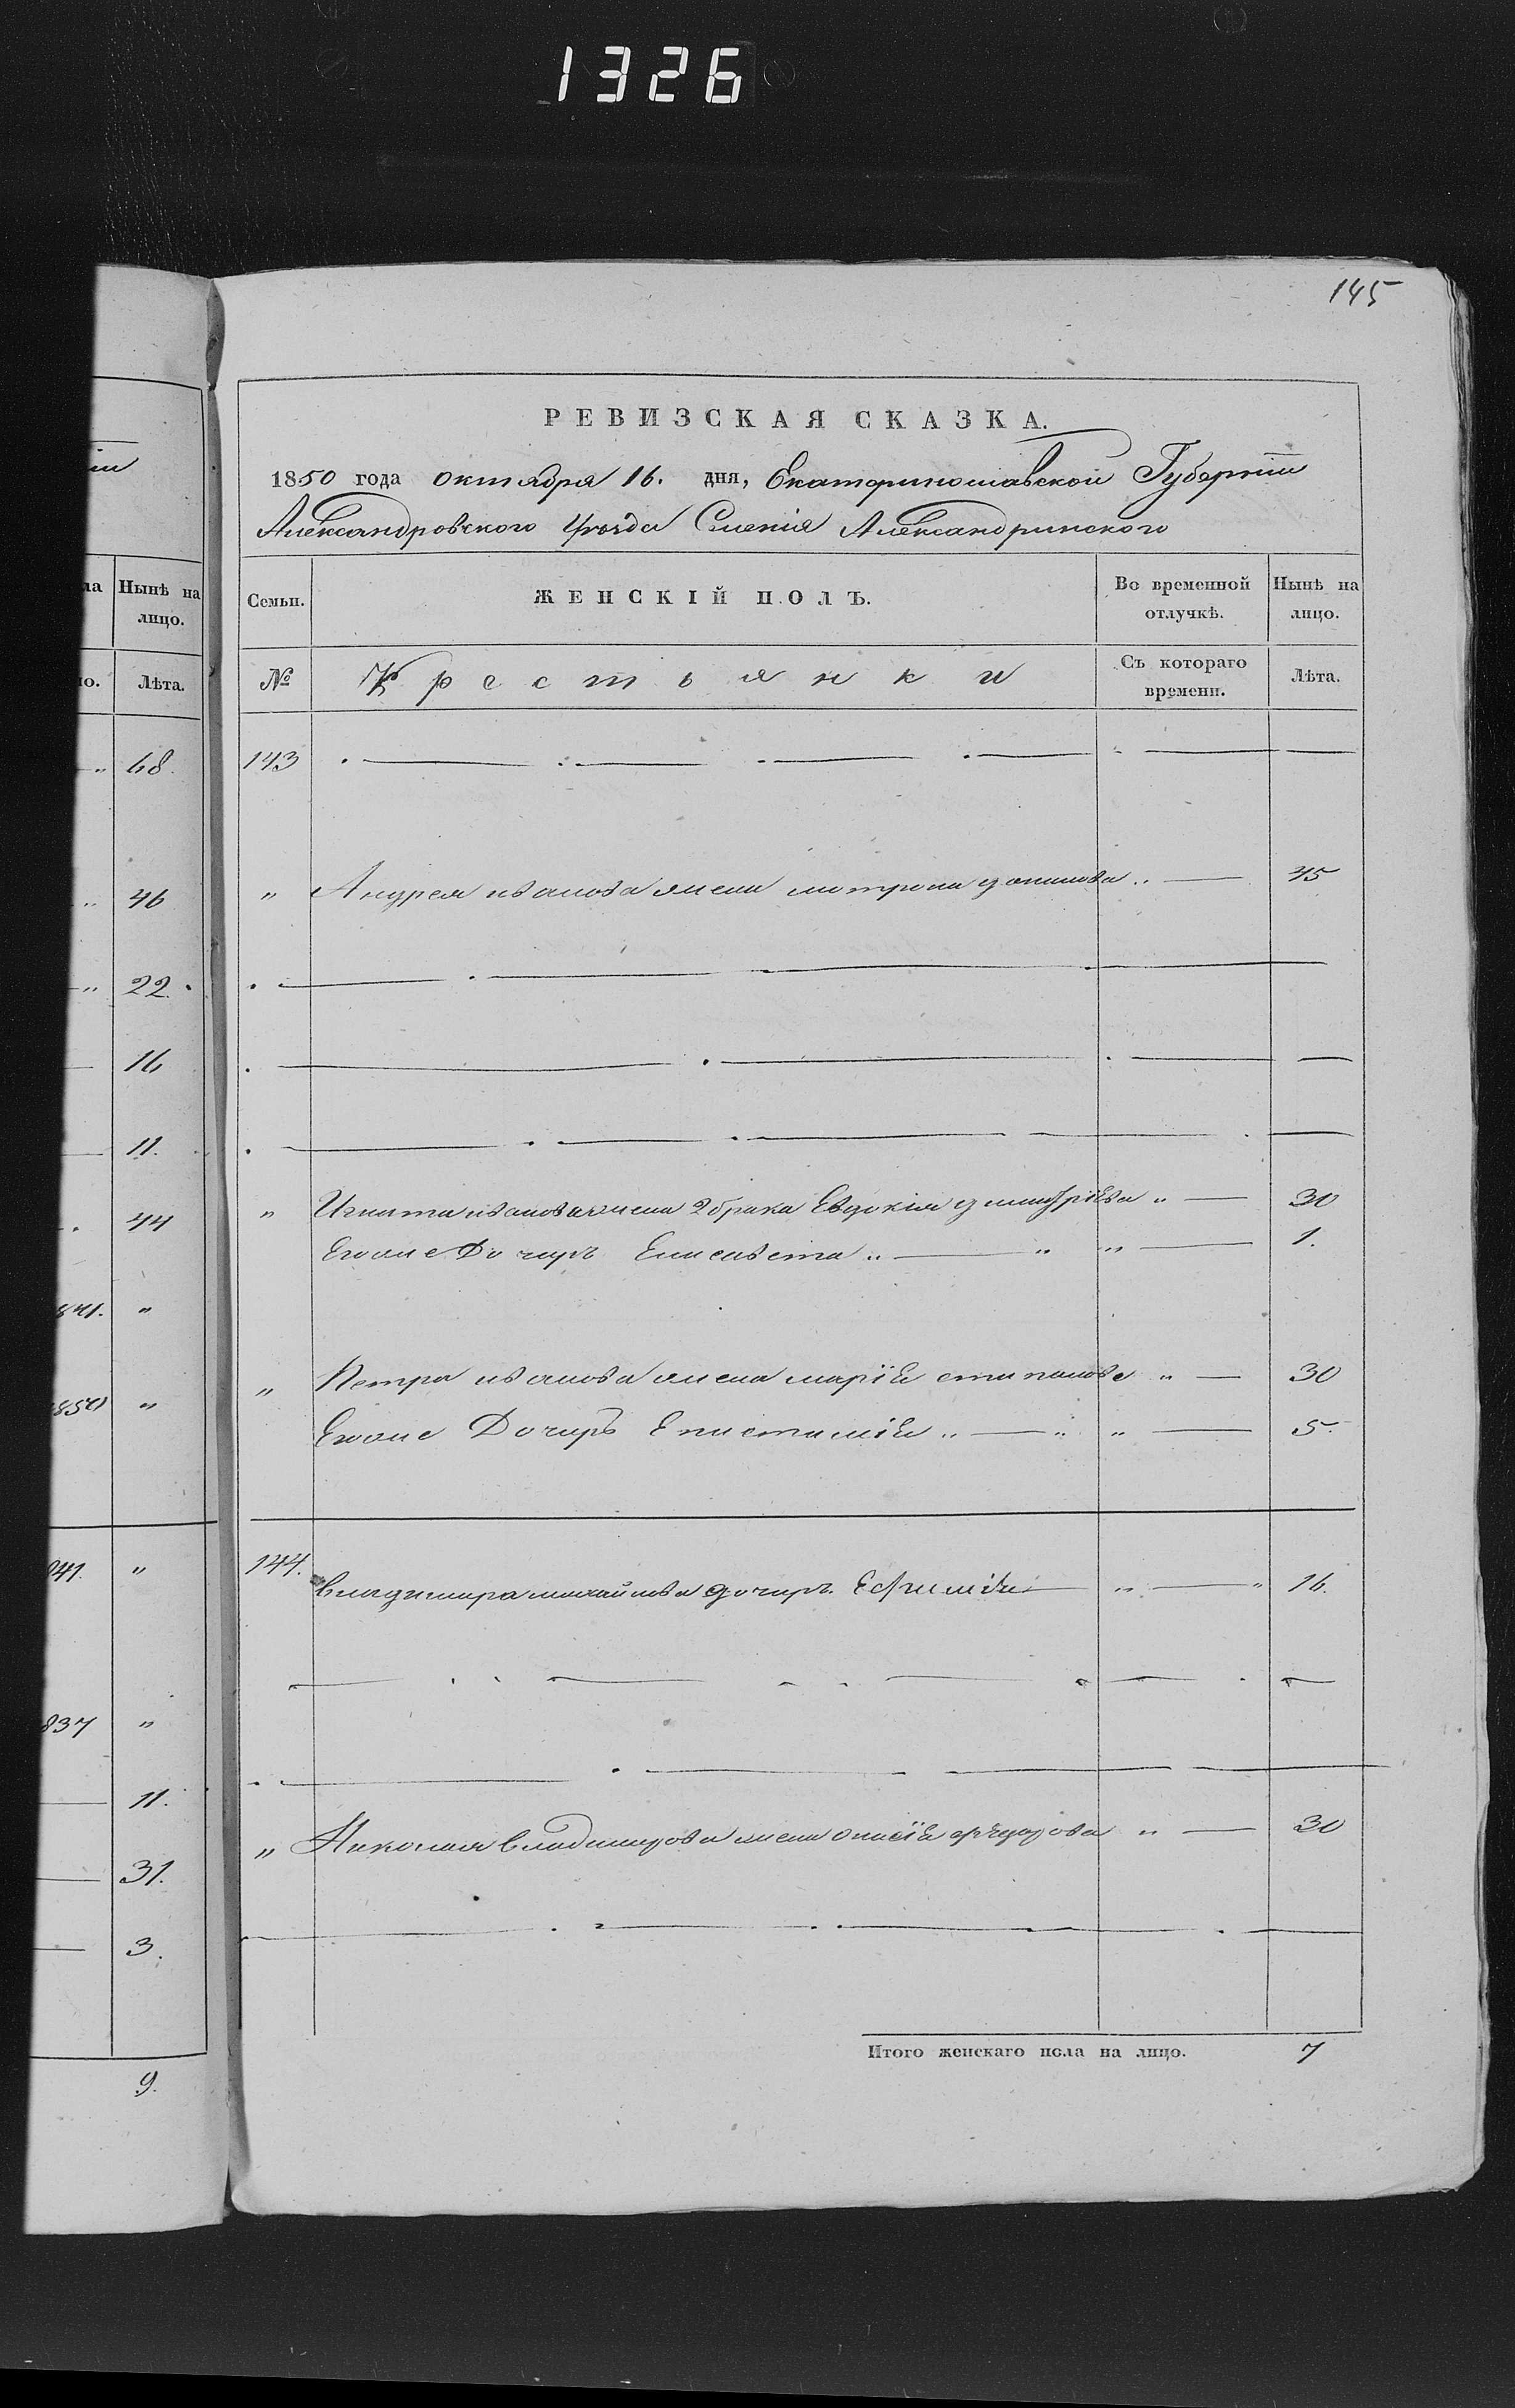 1326
145
РЕВИЗСКАЯ СКАЗКА.
1850 года октября 16. дня, Екатеринославской Губерніи
Александровского Уѣзда Селенія Александринского
Семьи.
ЖЕНСКІЙ ПОЛЪ.
Во временной отлучкѣ.
Нынѣ на лицо.
№
Крестьянки
Съ котораго времени.
Лѣта.
143
" Андрея иванова жена матрона данилова " 45
" Игната иванова жена 2 брака Евдокія димитріева " 30
Егоже Дочерь Елисавета " " " 1.
" Петра иванова жена марія степанова " 30
Егоже Дочерь Епистимія " " " 5.
144. владимира михайлова дочерь Ефимія " " 16.
" Николая владимирова жена 30
Итого женскаго пола на лицо. 7
іи
ла
Нынѣ на лицо.
но.
Лѣта.
" 68.
" 46
" 22.
16
11.
44
841. "
1850 "
841. "
837 "
11.
31.
3.
9.